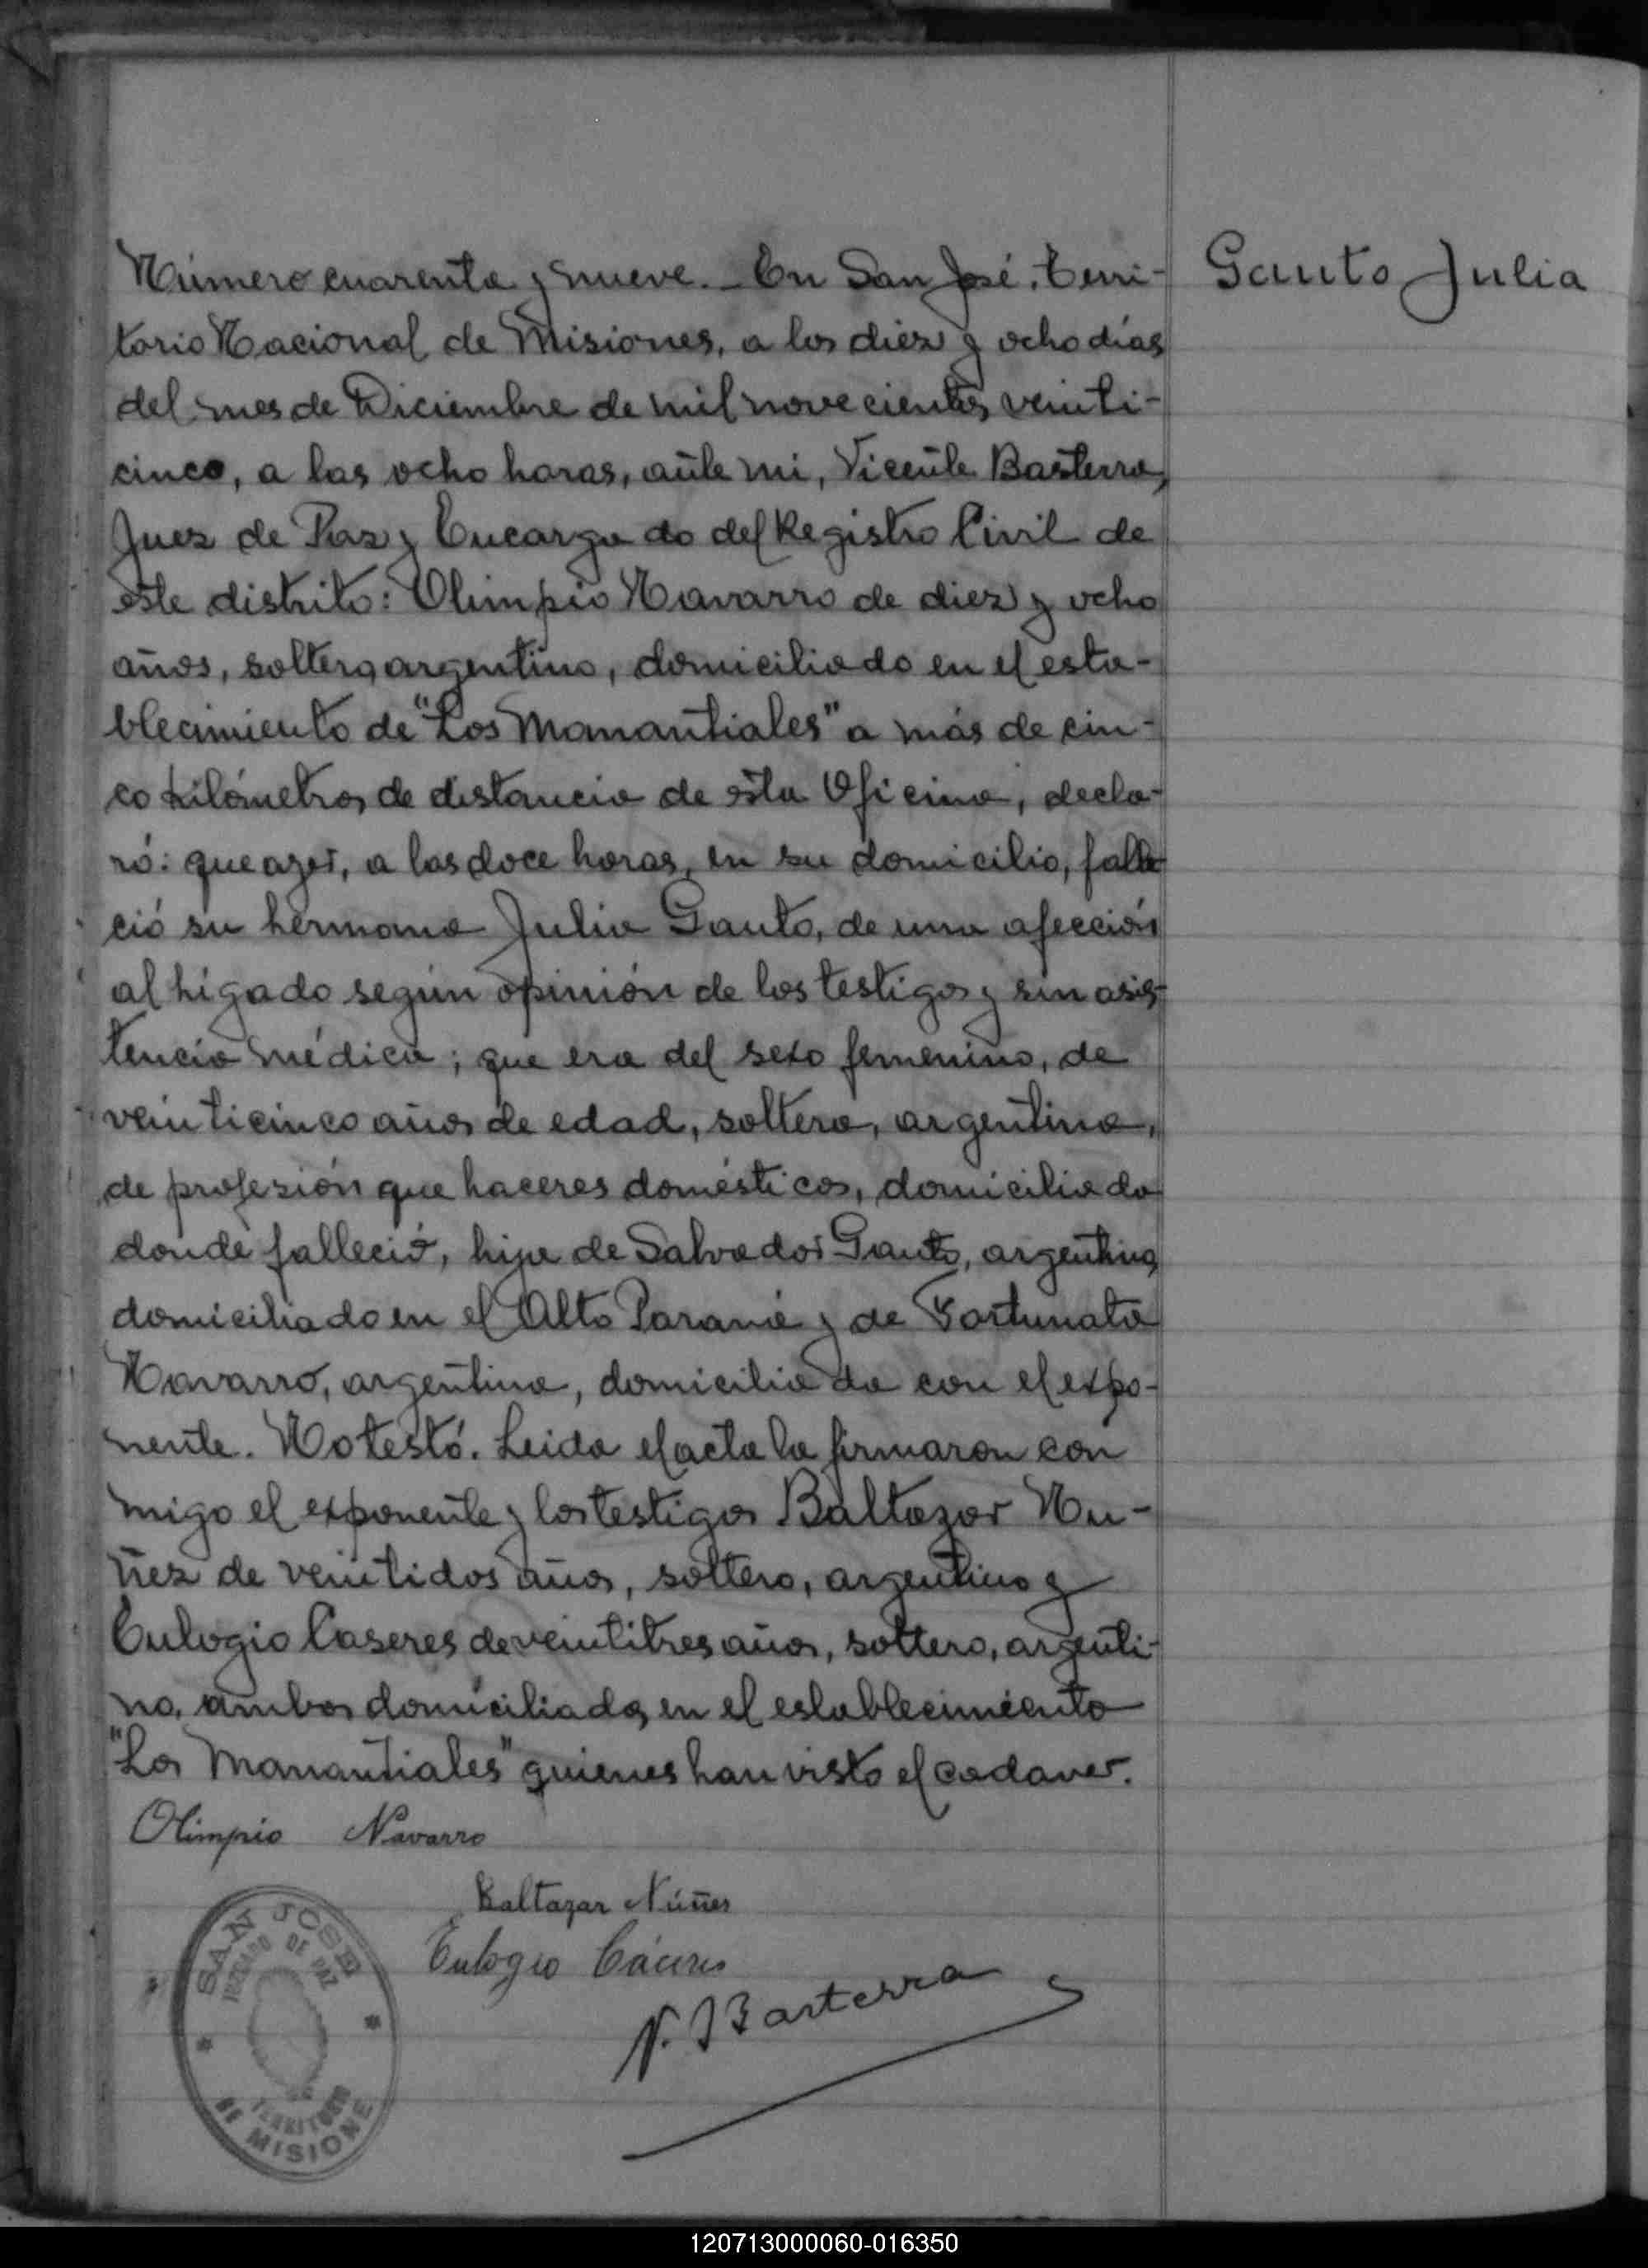 Gauto Julia
Número cuarenta y nueve. _ En San José, Terri-
torio Nacional de Misiones, a los diez y ocho días
del mes de Diciembre de mil novecientos veinti-
cinco, a las ocho horas, ante mi, Vicente Basterra,
Juez de Paz y Encargado del Registro Civil de
este distrito: Olimpio Navarro de diez y ocho
años, soltero, argentino, domiciliado en el esta-
blecimiento de "Los Manantiales" a más de cin-
co kilómetros de distancia de esta Oficina, decla-
ró: que ayer, a las doce horas, en su domicilio, falle
ció su hermana Julia Gauto, de una afección
al hígado según opinión de los testigos y sin asis-
tencia médica; que era del sexo femenino, de
veinticinco años de edad, soltera, argentina,
de profesión que haceres domésticos, domiciliada
donde falleció, hija de Salvador Gauto, argentino,
domiciliado en el Alto Paraná y de Fortunata
Navarro, argentina, domiciliada con el expo-
nente. No testó. Leida el acta la firmaron con
migo el exponente y los testigos Baltazar Nu-
ñez de veintidos años, soltero, argentino y
Eulogio Caseres de veintitres años, soltero, argenti-
no, ambos domiciliados en el establecimiento
"Los Manantiales" quienes han visto el cadaver.
Olimpio Navarro
Baltazar Núñes
Eulogio Cáceres
V. Basterra
SAN JOSE
JUZGADO DE PAZ
TERRITORIO
DE MISIONE
120713000060-016350